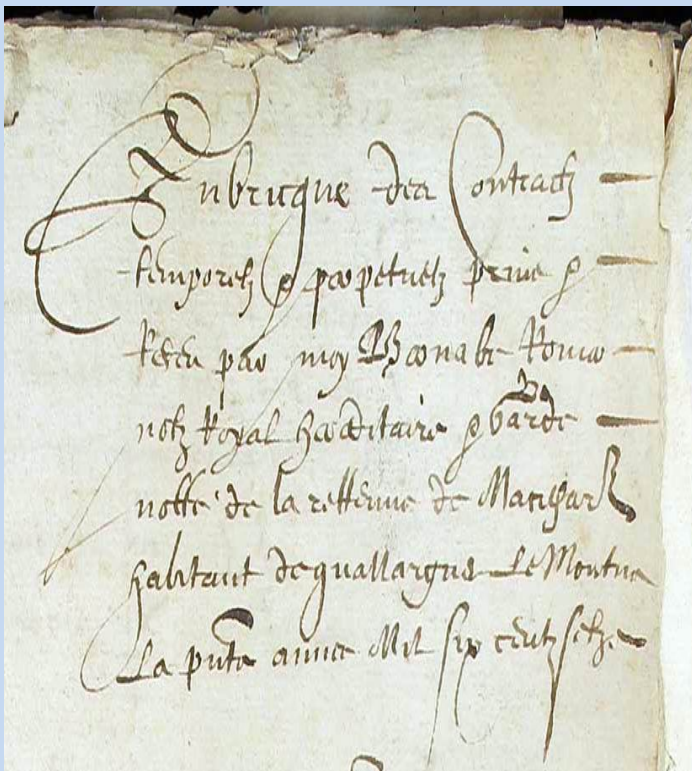 Rubricque des Contractz
temporelz & perpetuelz prins &
Receu par moy Bernabe Romieu
notre Royal hereditaire & garde
notte de la rettenue de
habitant de guallargues Le Montus
La pnte annee Mil six centz setze